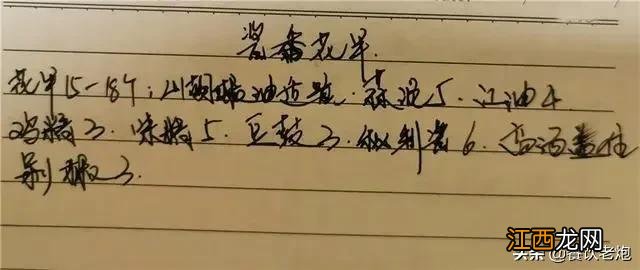 酱香花甲
花甲15-18个；川椒油适量．蒜泥5．江油4
鸡精3．味精5．豆鼓3．辣酱6．啤酒盖住
剁椒3．
江西龙网
头条@餐饮老炮